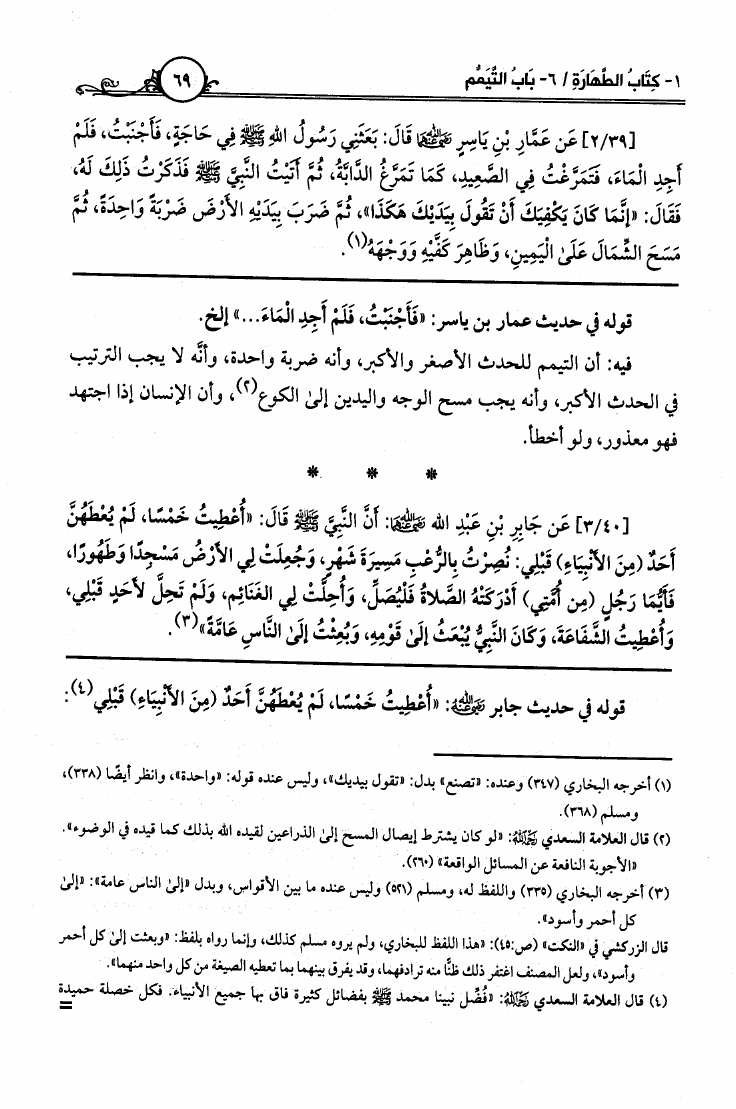 ١- كِتَابُ الطَّهَارَةِ / ٦- بَابُ التَّيَمُّمِ
٦٩
[٢/٣٩] عَن عَمَّارِ بْنِ يَاسِرٍ رَضِيَ اللهُ عَنْهُمَا قَالَ: بَعَثَنِي رَسُولُ اللهِ ﷺ فِي حَاجَةٍ، فَأَجْنَبْتُ، فَلَمْ
أَجِدِ الْمَاءَ، فَتَمَرَّغْتُ فِي الصَّعِيدِ، كَمَا تَمَرَّغُ الدَّابَّةُ، ثُمَّ أَتَيْتُ النَّبِيَّ ﷺ فَذَكَرْتُ ذَلِكَ لَهُ،
فَقَالَ: «إِنَّمَا كَانَ يَكْفِيَكَ أَنْ تَقُولَ بِيَدَيْكَ هَكَذَا»، ثُمَّ ضَرَبَ بِيَدَيْهِ الأَرْضَ ضَرْبَةً وَاحِدَةً، ثُمَّ
مَسَحَ الشِّمَالَ عَلَىٰ الْيَمِينِ، وَظَاهِرَ كَفَّيْهِ وَوَجْهَهُ(١).
قوله في حديث عمار بن ياسر: «فَأَجْنَبْتُ، فَلَمْ أَجِدِ الْمَاءَ...» إلخ.
فيه: أن التيمم للحدث الأصغر والأكبر، وأنه ضربة واحدة، وأنَّه لا يجب الترتيب
في الحدث الأكبر، وأنه يجب مسح الوجه واليدين إلىٰ الكوع(٢)، وأن الإنسان إذا اجتهد
فهو معذور، ولو أخطأ.
* * *
[٣/٤٠] عَن جَابِرِ بْنِ عَبْدِ الله رَضِيَ اللهُ عَنْهُمَا: أَنَّ النَّبِيَّ ﷺ قَالَ: «أُعْطِيتُ خَمْسًا، لَمْ يُعْطَهُنَّ
أَحَدٌ (مِنَ الأَنْبِيَاءِ) قَبْلِي: نُصِرْتُ بِالرُّعْبِ مَسِيرَةَ شَهْرٍ، وَجُعِلَتْ لِي الأَرْضُ مَسْجِدًا وَطَهُورًا،
فَأَيُّمَا رَجُلٍ (مِن أُمَّتِي) أَدْرَكَتْهُ الصَّلاةُ فَلْيُصَلِّ، وَأُحِلَّتْ لِي الغَنَائِم، وَلَمْ تَحِلَّ لأَحَدٍ قَبْلِي،
وَأُعْطِيتُ الشَّفَاعَةَ، وَكَانَ النَّبِيُّ يُبْعَثُ إِلَىٰ قَوْمِهِ، وَبُعِثْتُ إِلَىٰ النَّاسِ عَامَّةً»(٣).
قوله في حديث جابر رَضِيَ اللهُ عَنْهُ: «أُعْطِيتُ خَمْسًا، لَمْ يُعْطَهُنَّ أَحَدٌ (مِنَ الأَنْبِيَاءِ) قَبْلِي(٤):
(١) أخرجه البخاري (٣٤٧) وعنده: «تصنع» بدل: «تقول بيديك»، وليس عنده قوله: «واحدة»، وانظر أيضًا (٣٣٨)،
ومسلم (٣٦٨).
(٢) قال العلامة السعدي رَحِمَهُ اللهُ: «لو كان يشترط إيصال المسح إلىٰ الذراعين لقيده الله بذلك كما قيده في الوضوء».
«الأجوبة النافعة عن المسائل الواقعة» (٢٦٠).
(٣) أخرجه البخاري (٣٣٥) واللفظ له، ومسلم (٥٢١) وليس عنده ما بين الأقواس، وبدل «إلىٰ الناس عامة»: «إلىٰ
كل أحمر وأسود».
قال الزركشي في «النكت» (ص:٤٥): «هذا اللفظ للبخاري، ولم يروه مسلم كذلك، وإنما رواه بلفظ: «وبعثت إلىٰ كل أحمر
وأسود»، ولعل المصنف اغتفر ذلك ظنًّا منه ترادفهما، وقد يفرق بينهما بما تعطيه الصيغة من كل واحد منهما».
(٤) قال العلامة السعدي رَحِمَهُ اللهُ: «فُضِّل نبينا محمد ﷺ بفضائل كثيرة فاق بها جميع الأنبياء. فكل خصلة حميدة
=